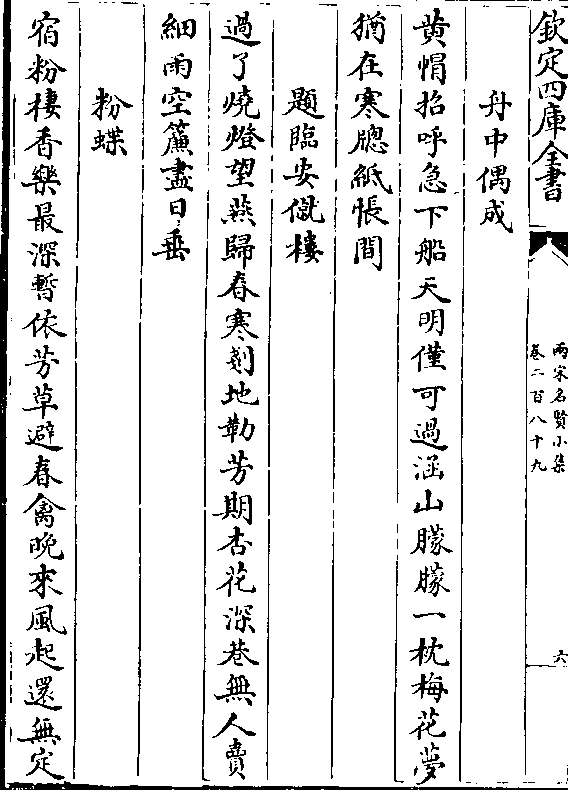 欽定四庫全書
兩宋名賢小集
卷二百八十九
六
舟中偶成
黄帽招呼急下船天明僅可過涵山朦朦一枕梅花夢
猶在寒牕紙帳間
題臨安僦樓
過了燒燈望燕歸春寒剗地勒芳期杏花深巷無人賣
細雨空簾盡日垂
粉蝶
宿粉棲香樂最深暫依芳草避春禽晚來風起還無定